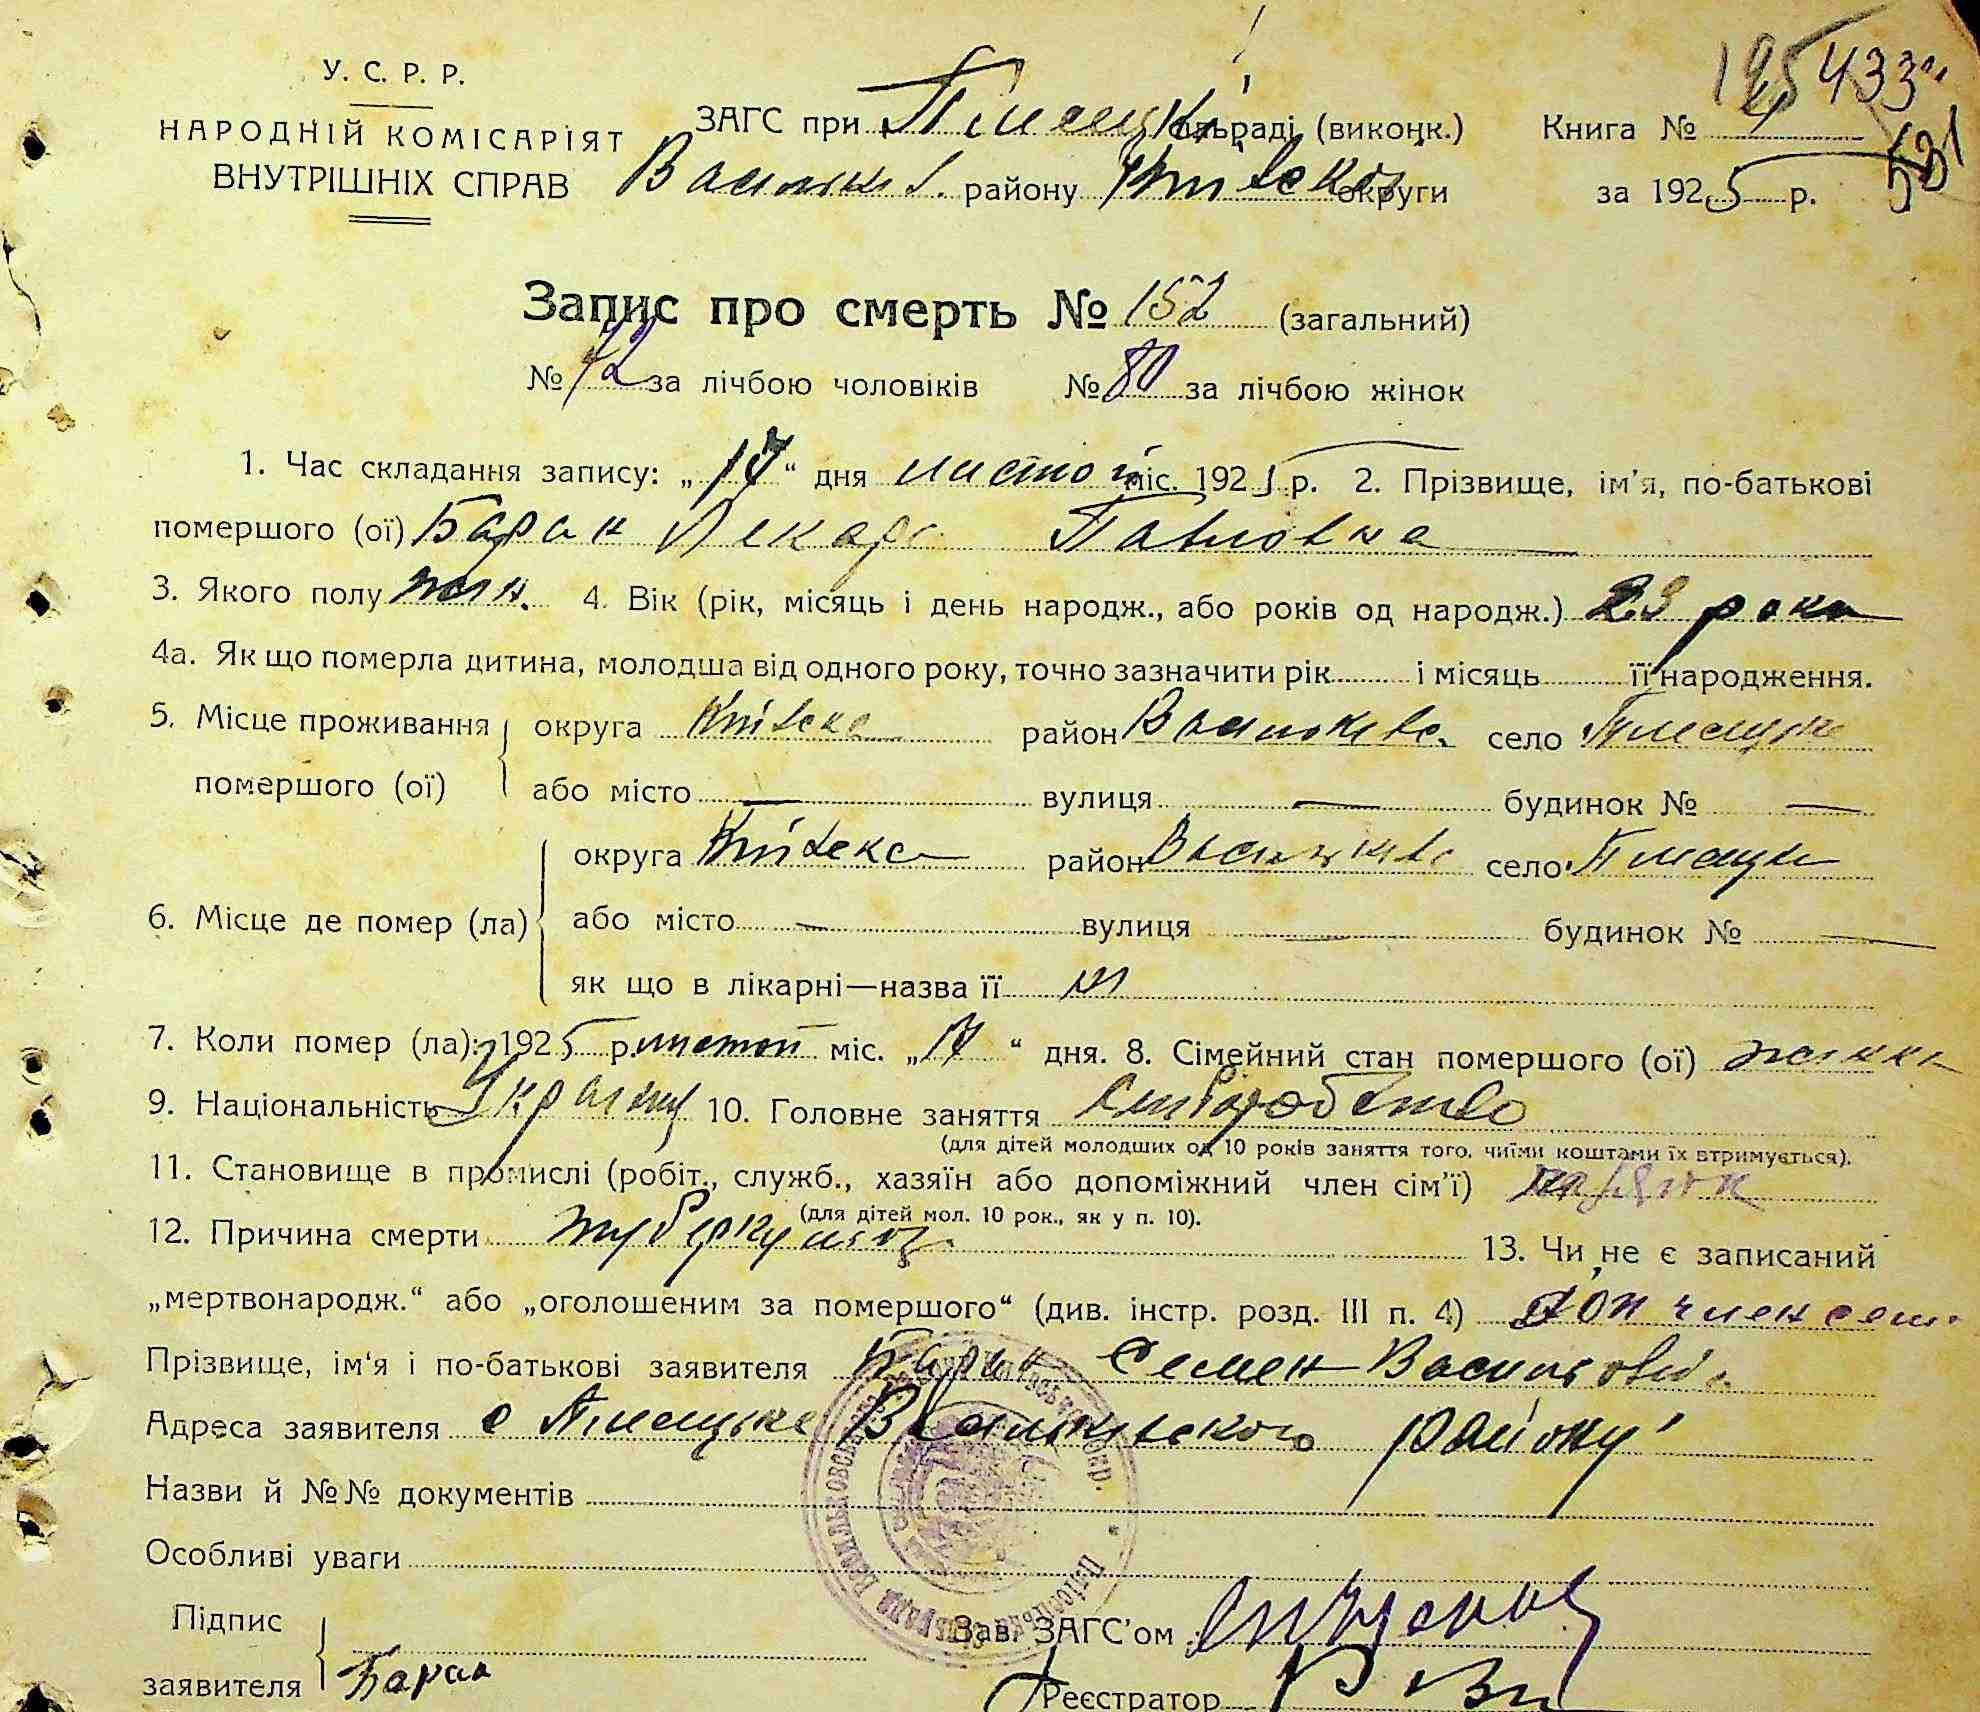 195 433
У. С. Р. Р.
НАРОДНІЙ КОМІСАРІЯТ
ВНУТРІШНІХ СПРАВ
ЗАГС при Плесецькій сільраді (виконк.)
Васильків. району Київської округи
Книга № 4
581
за 1925 р.
Запис про смерть № 152 (загальний)
№ 72 за лічбою чоловіків № 80 за лічбою жінок
1. Час складання запису: „17“ дня листоп міс. 1925 р. 2. Прізвище, ім'я, по-батькові
помершого (ої) Баран Павловна
3. Якого полу жін. 4. Вік (рік, місяць і день народж., або років од народж.) 23 роки
4а. Як що померла дитина, молодша від одного року, точно зазначити рік і місяць її народження.
5. Місце проживання округа Київська район Васильківс. село Плецеке
помершого (ої) або місто — вулиця — будинок № —
округа Київська район Васильківс село
6. Місце де помер (ла) або місто — вулиця — будинок № —
як що в лікарні—назва її ні
7. Коли помер (ла): 1925 р. листоп міс. „17“ дня. 8. Сімейний стан помершого (ої)
9. Національність Україн 10. Головне заняття хліборобство
(для дітей молодших од 10 років заняття того, чиїми коштами їх втримується).
11. Становище в промислі (робіт., служб., хазяїн або допоміжний член сім'ї)
(для дітей мол. 10 рок., як у п. 10).
12. Причина смерти туберкульоз 13. Чи не є записаний
„мертвонародж.“ або „оголошеним за помершого“ (див. інстр. розд. III п. 4) доп член сем.
Прізвище, ім'я і по-батькові заявителя Баран Семен Васильович
Адреса заявителя с Васильківского району
Назви й №№ документів
Особливі уваги
Підпис
заявителя Баран
Зав. ЗАГС'ом
Реєстратор